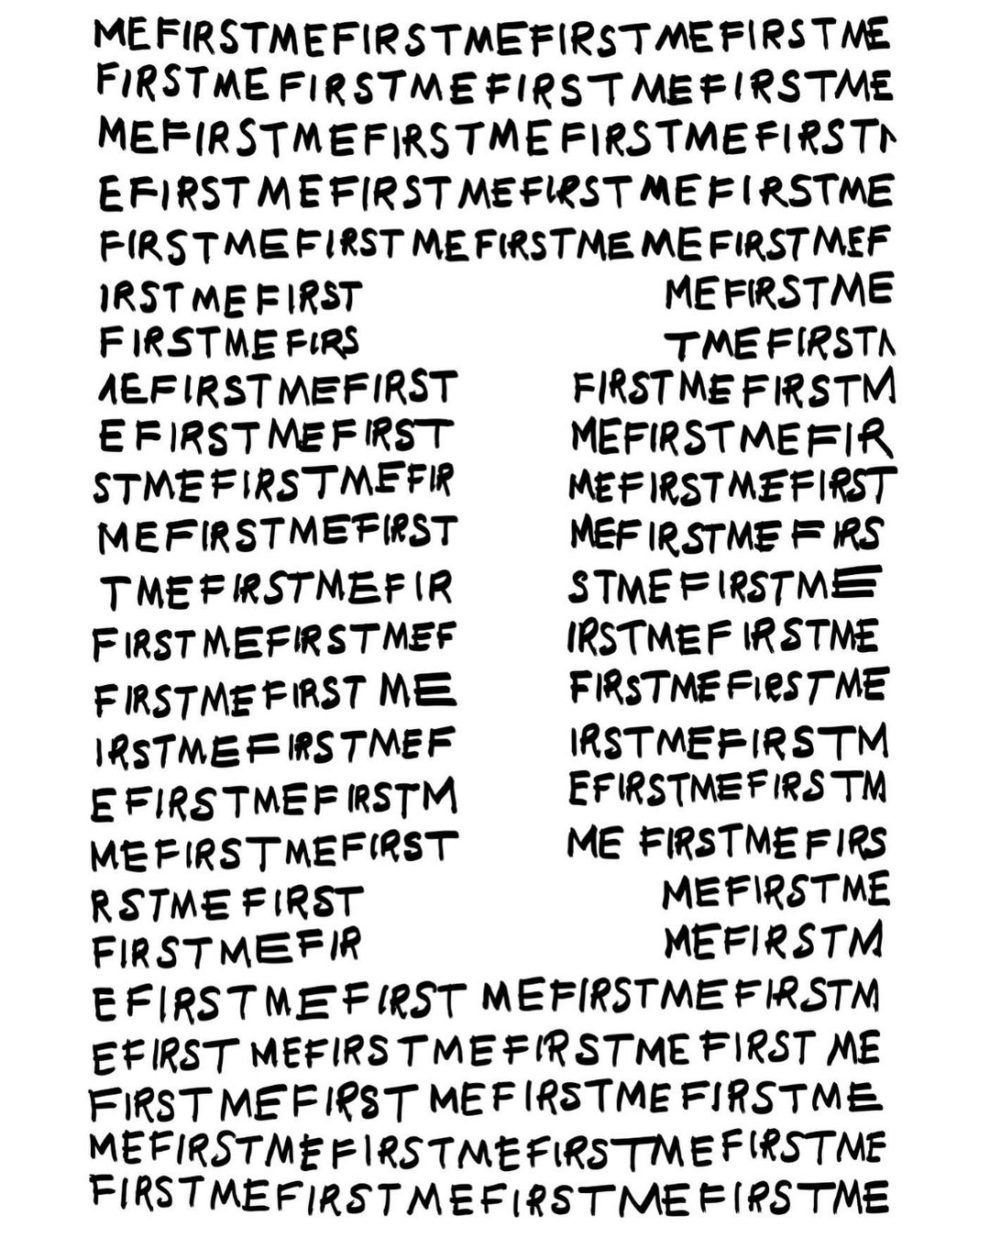 MEFIRSTMEFIRSTMEFIRSTMEFIRSTME
FIRSTMEFIRSTMEFIRSTMEFIRSTME
MEFIRSTMEFIRSTMEFIRSTMEFIRST
EFIRSTMEFIRSTMEFIRSTMEFIRSTME
FIRSTMEFIRSTMEFIRSTMEMEFIRSTMEF
IRSTMEFIRST MEFIRSTME
FIRSTMEFIRS TMEFIRST
MEFIRSTMEFIRST FIRSTMEFIRSTM
EFIRSTMEFIRST MEFIRSTMEFIR
STMEFIRSTMEFIR MEFIRSTMEFIRST
MEFIRSTMEFIRST MEFIRSTMEFIRS
TMEFIRSTMEFIR STMEFIRSTME
FIRSTMEFIRSTMEF IRSTMEFIRSTME
FIRSTMEFIRST ME FIRSTMEFIRSTME
IRSTMEFIRSTMEF IRSTMEFIRSTM
EFIRSTMEFIRSTM EFIRSTMEFIRSTM
MEFIRSTMEFIRST ME FIRSTMEFIRS
RSTMEFIRST MEFIRSTME
FIRSTMEFIR MEFIRSTM
EFIRSTMEFIRST MEFIRSTMEFIRSTM
EFIRST MEFIRSTMEFIRSTMEFIRST ME
FIRSTMEFIRST MEFIRSTMEFIRSTME
MEFIRSTMEFIRSTMEFIRSTMEFIRSTME
FIRSTMEFIRSTMEFIRSTMEFIRSTME